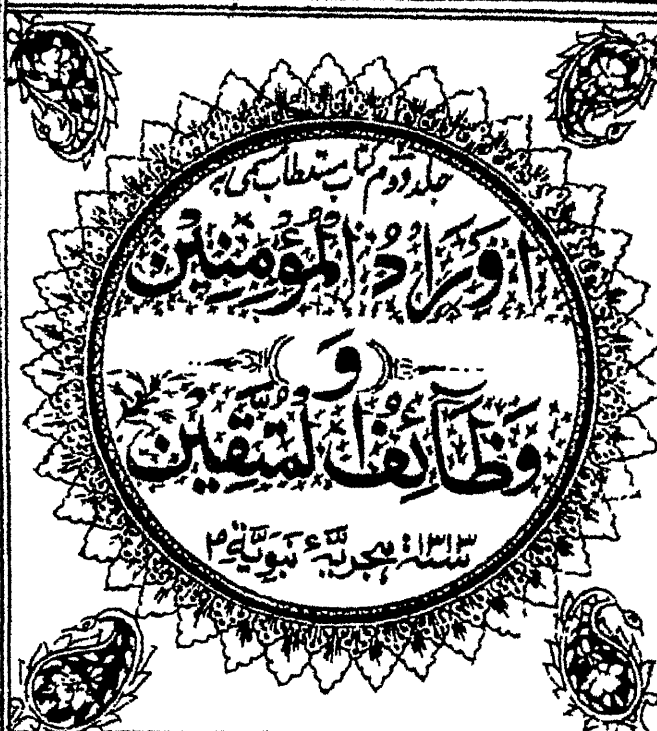 جلد دوم کتاب مستطاب مسمی به
اَورَادُ المُؤمِنِیْن
وَ
وَظَآئِفُ المُتَّقِیْن
سنه ۱۳۱۳ ہجریّہ نبویّہ م